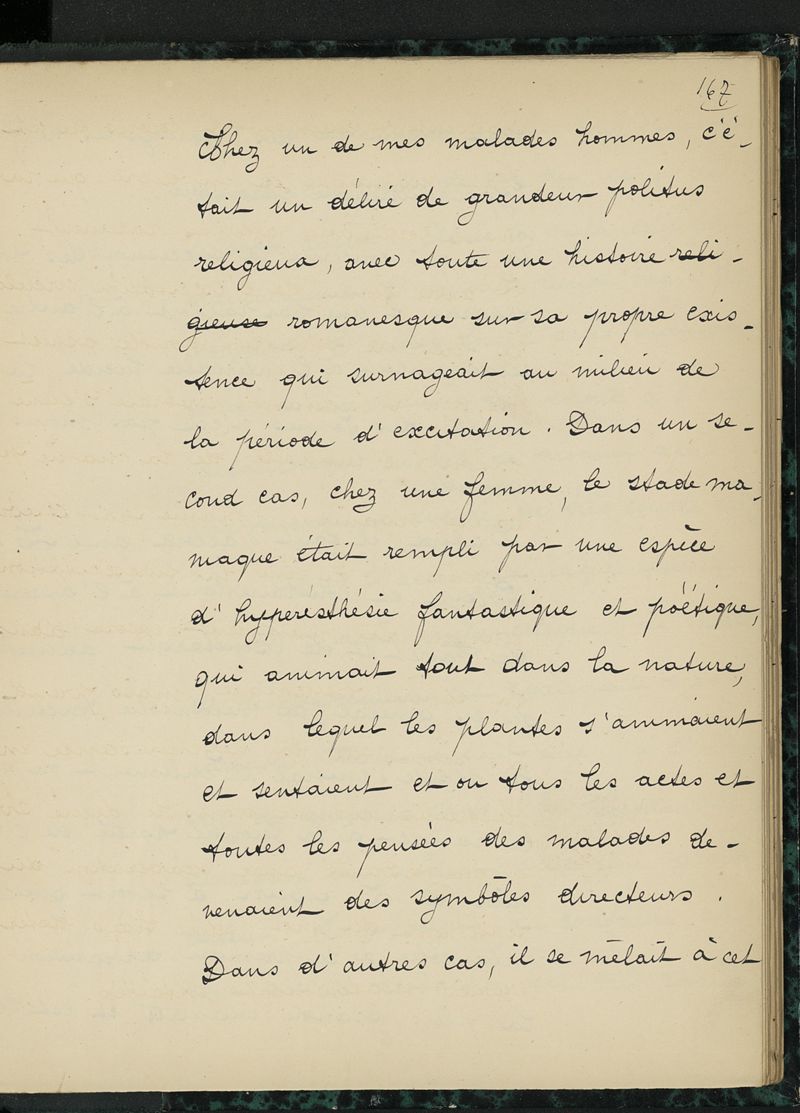 167
Chez un de mes malades hommes, c'é-
tait un délire de grandeur politus
religieux, avec toute une histoire reli-
gieuse romanesque sur sa propre exis-
tence qui surnageait au milieu de
la période d'excitation. Dans un se-
cond cas, chez une femme, le stade ma-
niaque était rempli par une espèce
d'hyperésthésie fantastique et poétique,
qui animait tout dans la nature,
dans lequel les plantes s'animaient
et sentaient et ou tous les actes et
toutes les pensées des malades de-
venaient des symbôles directeurs.
Dans d'autres cas, il se mêlait à cet